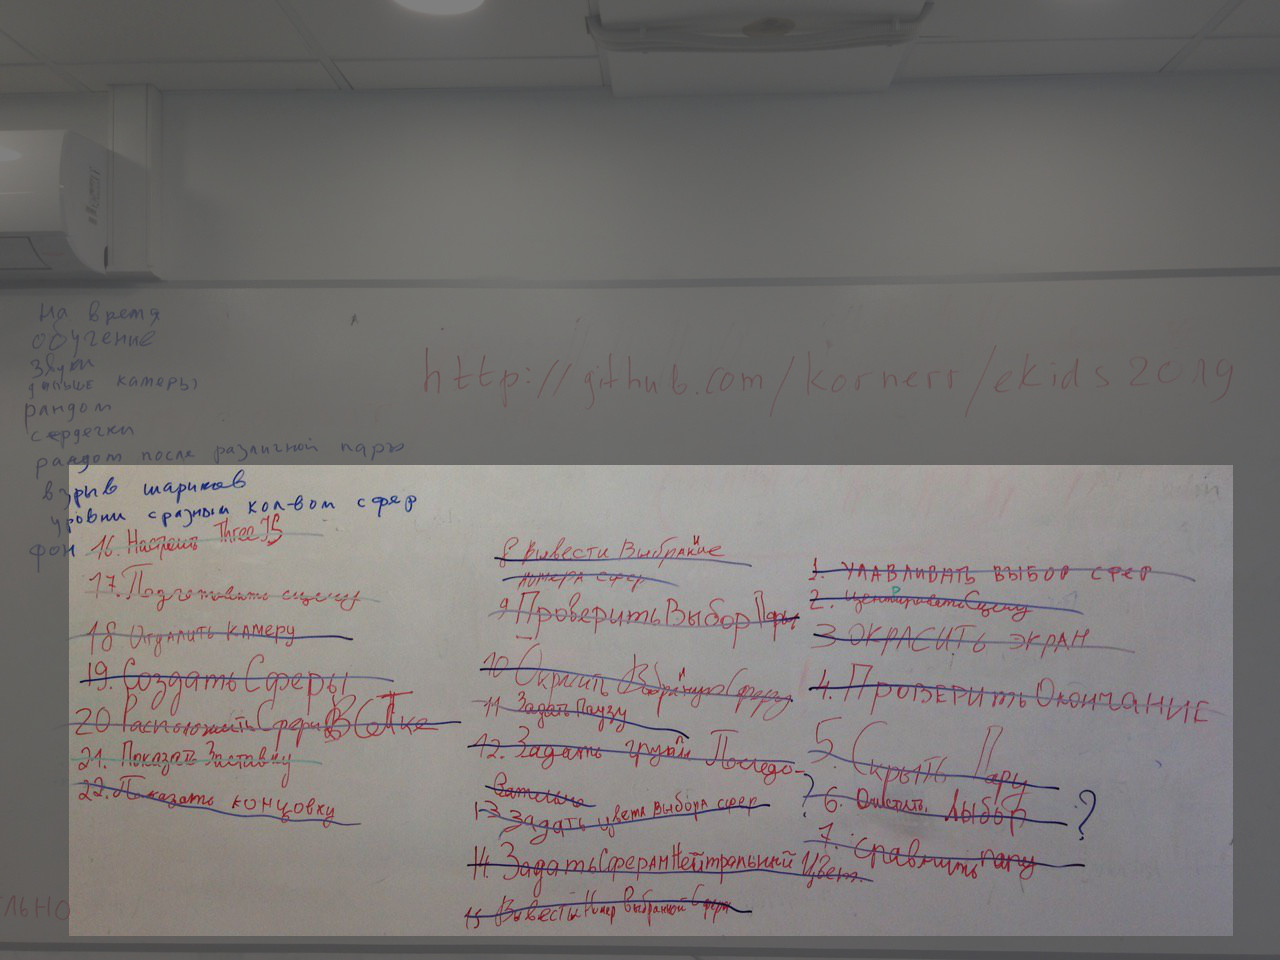 На время
обучение
звуки
дальше камеры
рандом
сердечки
рандом после различной пары
взрыв шариков
уровни с разным кол-вом сфер
фон
http://github.com/kornerr/ekids2019
16. Настроить ThreeJS
17. Подготовить сцену
18 Отдалить камеру
19. Создать Сферы
20 Расположить Сферы В Сетке
21. Показать Заставку
22. Показать концовку
8 Вывести Выбранные
номера сфер
9 Проверить Выбор Пары
10 Окрасить Выбранную Сферу
11 Задать Паузу
12. Задать группы Последо-
вательно
13 Задать цвета выбора сфер
14. Задать Сферам Нейтральный Цвет.
15 Вывести Номер Выбранной Сферы
1. УЛАВЛИВАТЬ ВЫБОР СФЕР
2. Центрировать Сцену
3 ОКРАСИТЬ ЭКРАН
4. Проверить Окончание
5. Скрыть Пару
? 6. Очистить Выбор ?
7. сравнить пару
ЛЬНО